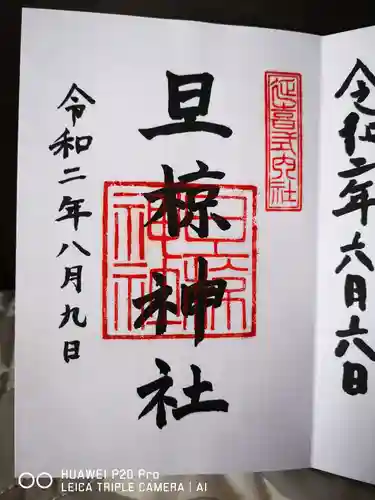 延喜式内社
旦椋神社
旦椋神社
令和二年八月九日
令和二年六月六日
HUAWEI P20 Pro
LEICA TRIPLE CAMERA | AI